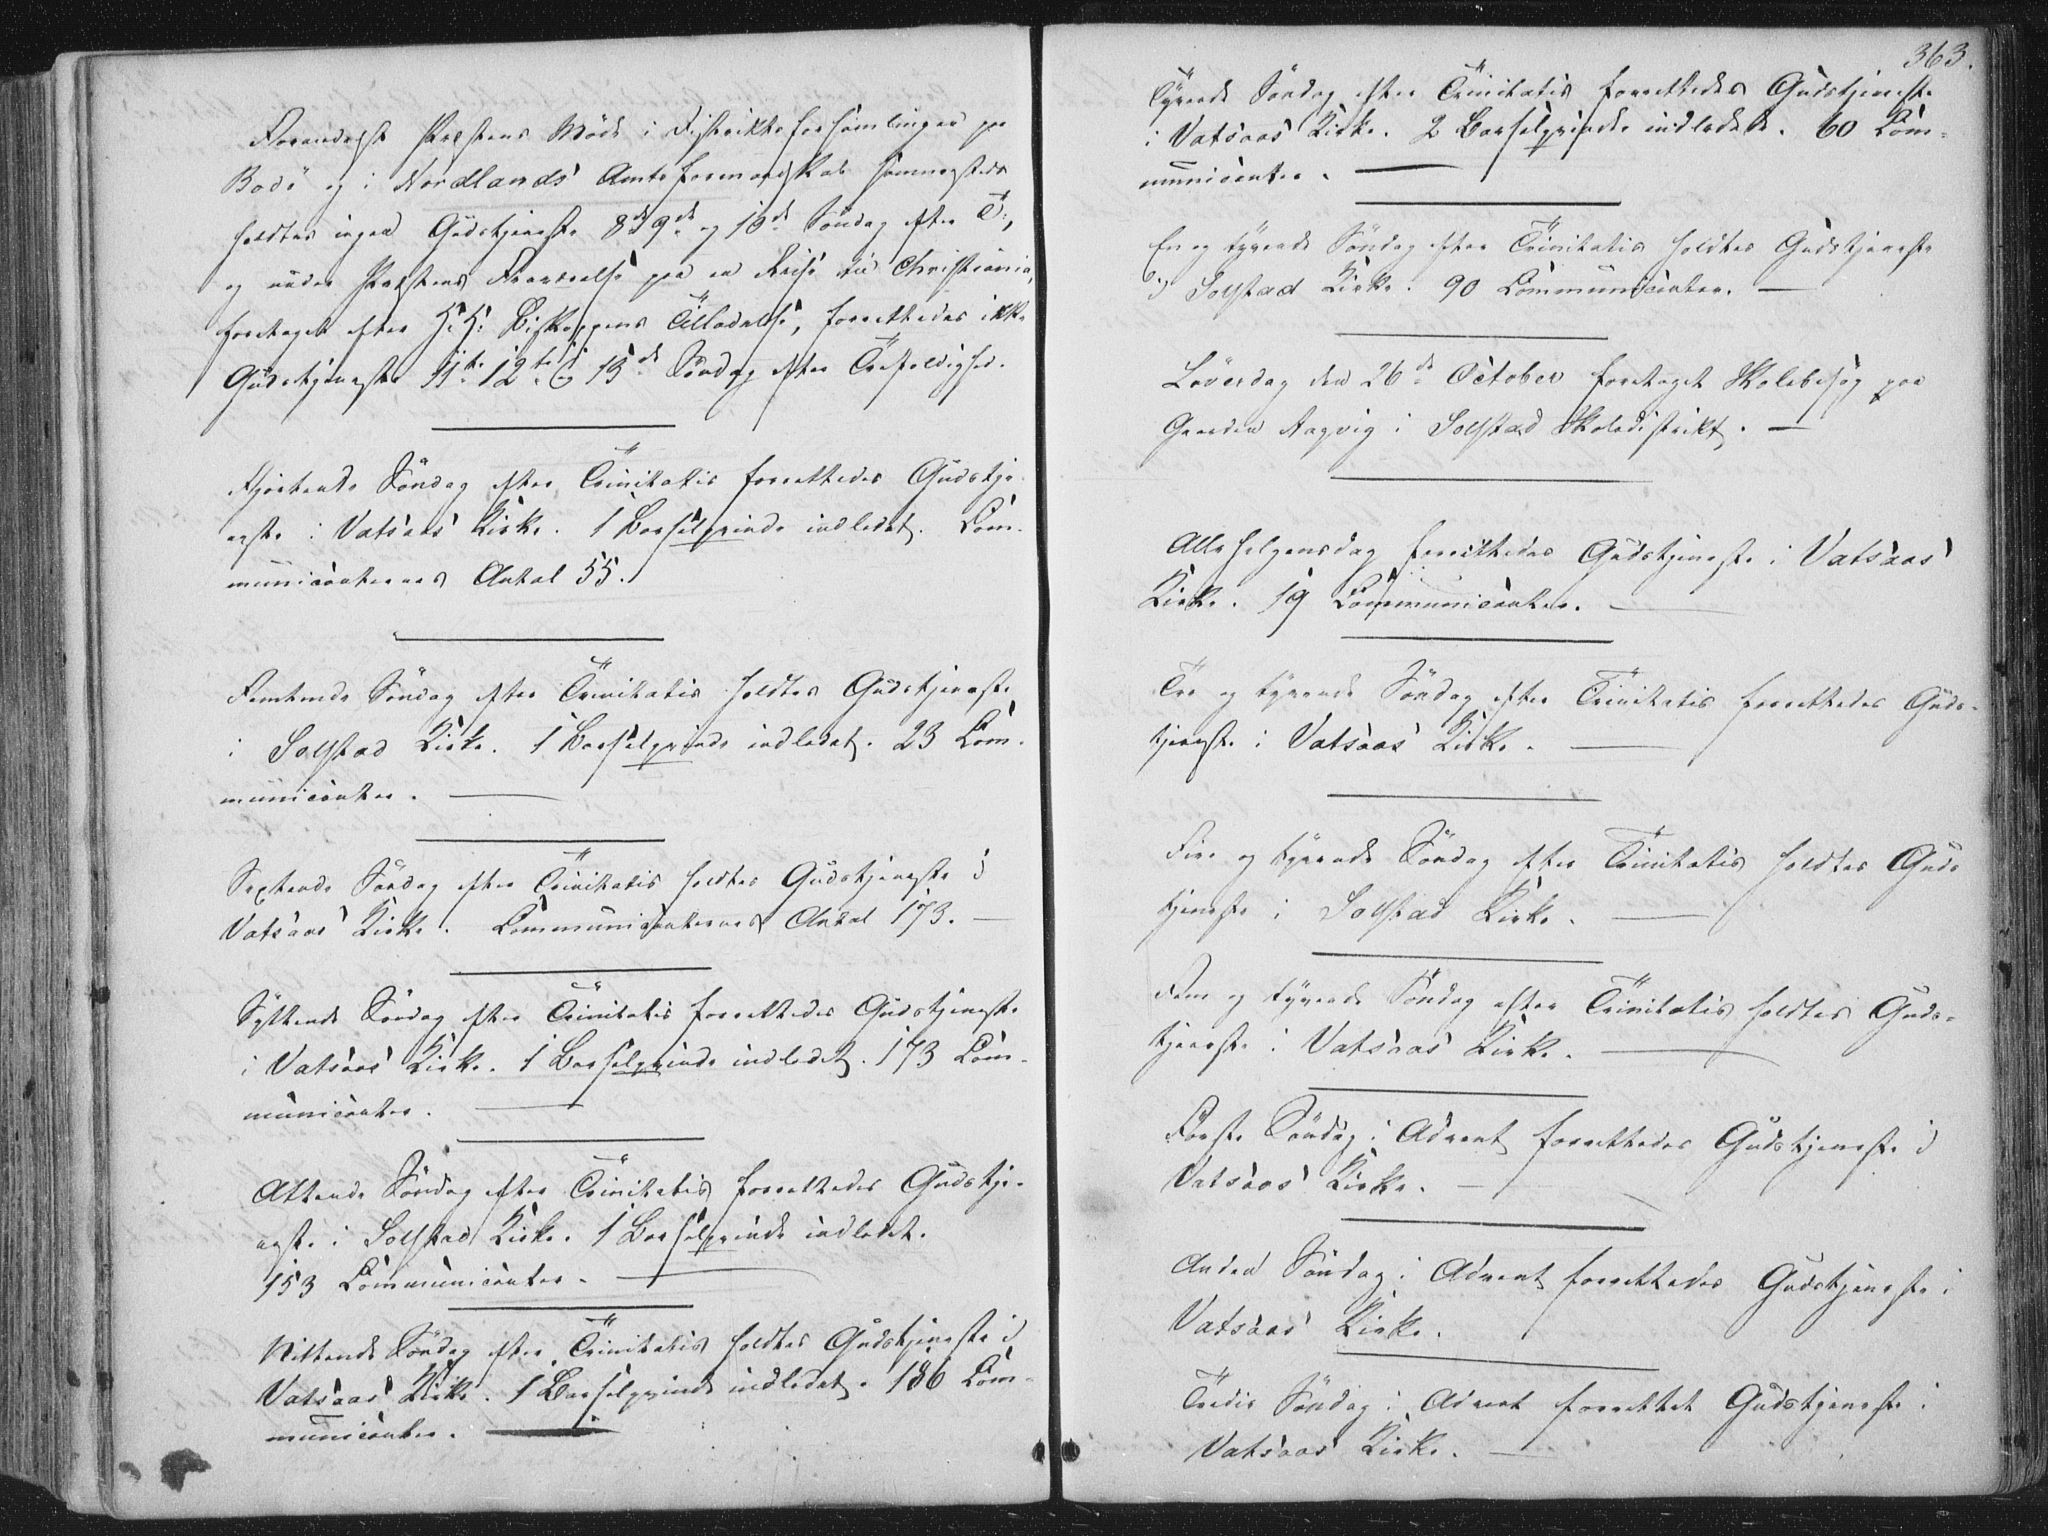 Formedelst Præstens Møde i Distriktsforsamlingen paa
Bodö og i Nordlands Amtsformandskab sammesteds
holdtes ingen Gudstjeneste 8de 9de og 10de Søndag efter T:,
og under Præstens Fraværelse paa en Reise til Christiania,
foretaget efter H. H. Biskoppens Tilladelse, forrettedes ikke
Gudstjeneste 11te 12te & 13de Søndag efter Trefoldighed.
Fjortende Søndag efter Trinitatis forrettedes Gudstje-
neste i Vatsaas Kirke. 1 Barselqvinde indledet. Com-
municanternes Antal 55.
Femtende Søndag efter Trinitatis holdtes Gudstjeneste
i Solstad Kirke. 1 Barselqvinde indledet. 23 Com-
municanter.
Sextende Søndag efter Trinitatis holdtes Gudstjeneste i
Vatsaas Kirke. Communicanternes Antal 173.
Syttende Søndag efter Trinitatis forrettedes Gudstjeneste
i Vatsaas Kirke. 1 Barselqvinde indledet. 173 Com-
municanter.
Attende Søndag efter Trinitatis forrettedes Gudstje-
neste i Solstad Kirke. 1 Barselqvinde indledet.
153 Communicanter.
Nittende Søndag efter Trinitatis holdtes Gudstjeneste i
Vatsaas Kirke. 1 Barselqvinde indledet. 136 Com-
municanter.
363.
Tyvende Søndag efter Trinitatis forrettedes Gudstjeneste
i Vatsaas Kirke. 2 Barselqvinder indledede. 60 Com-
municanter.
En og tyvende Søndag efter Trinitatis holdtes Gudstjeneste
i Solstad Kirke. 90 Communicanter.
Löverdag den 26de October foretaget Skolebesøg paa
Gaarden Aagvig i Solstad Skoledistrikt.
Alle Helgensdag forrettedes Gudstjeneste i Vatsaas
Kirke. 19 Communicanter.
Tre og tyvende Søndag efter Trinitatis forrettedes Guds-
tjeneste i Vatsaas Kirke.
Fire og tyvende Søndag efter Trinitatis holdtes Guds
tjeneste i Solstad Kirke.
Fem og tyvende Søndag efter Trinitatis holdtes Guds-
tjeneste i Vatsaas Kirke.
Første Søndag i Advent forrettedes Gudstjeneste i
Vatsaas Kirke.
Anden Søndag i Advent forrettedes Gudstjeneste i
Vatsaas Kirke.
Tredie Søndag i Advent forrettet Gudstjeneste i
Vatsaas Kirke.